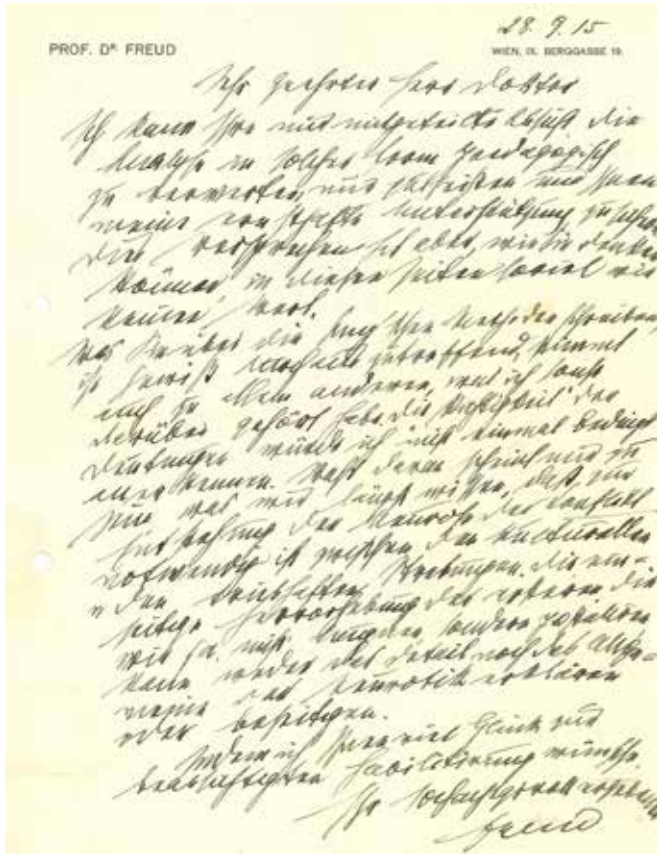 28. 9. 15
PROF. Dr FREUD
WIEN, IX. BERGGASSE 19.
Sehr geehrter Herr Doktor
Ich kann Ihre mir mitgeteilte Absicht die
Analyse in solcher Form paedagogisch
zu verwerten, nur und Ihnen
meine ernsthafte Unterstützung
Dies Versprechen ist aber, wie Sie denken
können, in diesen Zeiten soviel wie
keines, wert.
Was Sie über die Methoden schreiben,
ist gewiß zutreffend, stimmt
auch zu allem anderen, was ich sonst
darüber gehört habe. Die Richtigkeit der
Deutungen würde ich nicht einmal bedingt
anerkennen. daran scheint mir zu
was wir längst wissen, daß zur
Entstehung der Neurose der Konflikt
notwendig ist zwischen den kulturellen
u den triebhaften Strebungen. Die ein-
seitige Hervorhebung der ersteren die
wir ja nicht leugnen, sondern
kann weder das Detail noch das Allge-
meine der Neurotik erklären
oder beseitigen.
Indem ich Ihnen viel Glück zur
beabsichtigten Habilitierung wünsche
Ihr hochachtungsvoll ergebener
Freud